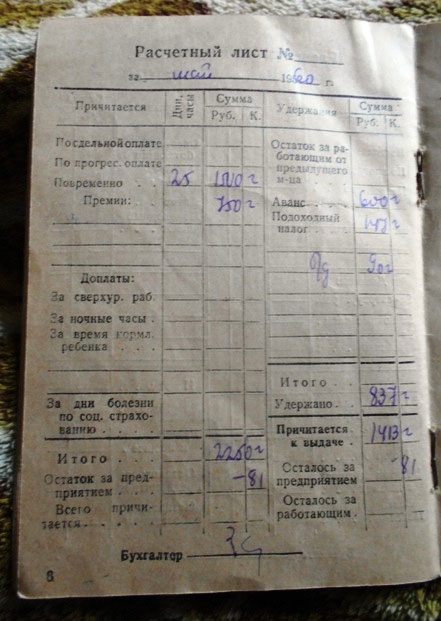 Расчетный лист №
за май 1960 г.
Причитается Дни, часы Сумма Руб. К. Удержания Сумма Руб. К.
По сдельной оплате Остаток за ра-
По прогрес. оплате ботающим от
предыдущего
Повременно 25 1500 г м-ца
Премии: 750 г Аванс 600 г
Подоходный
налог 147 г
90 г
Доплаты:
За сверхур. раб.
За ночные часы
За время кормл.
ребенка
Итого
За дни болезни Удержано 837 г
по соц. страхо-
ванию Причитается
к выдаче 1413 г
Итого 2250 г
Осталось за 81
Остаток за пред- -81 предприятием
приятием
Осталось за
Всего причи- работающим
тается
Бухгалтер
6